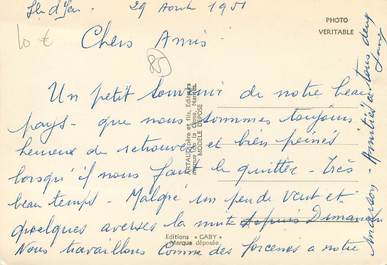 Ile d'Yeu 29 Août 1951
PHOTO
VERITABLE
10 €
Chers Amis.
85
Un petit souvenir de notre beau
pays - que nous sommes toujours
heureux de retrouver et bien peinés
lorsqu'il nous faut le quitter - Très
beau temps - Malgré un peu de vent et
quelques averses la nuit depuis Dimanche
Nous travaillons comme des forcenés a notre
Amitiés a tous deux
ARTAUD Père et fils, Editeurs
MODELE DEPOSE
Editions "GABY"
Marque déposée